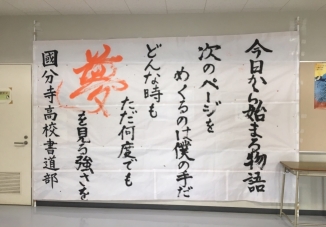 今日から始まる物語
次のページを
めくるのは僕の手だ
どんな時も
ただ何度でも
夢
を見る強さを
國分寺高校書道部